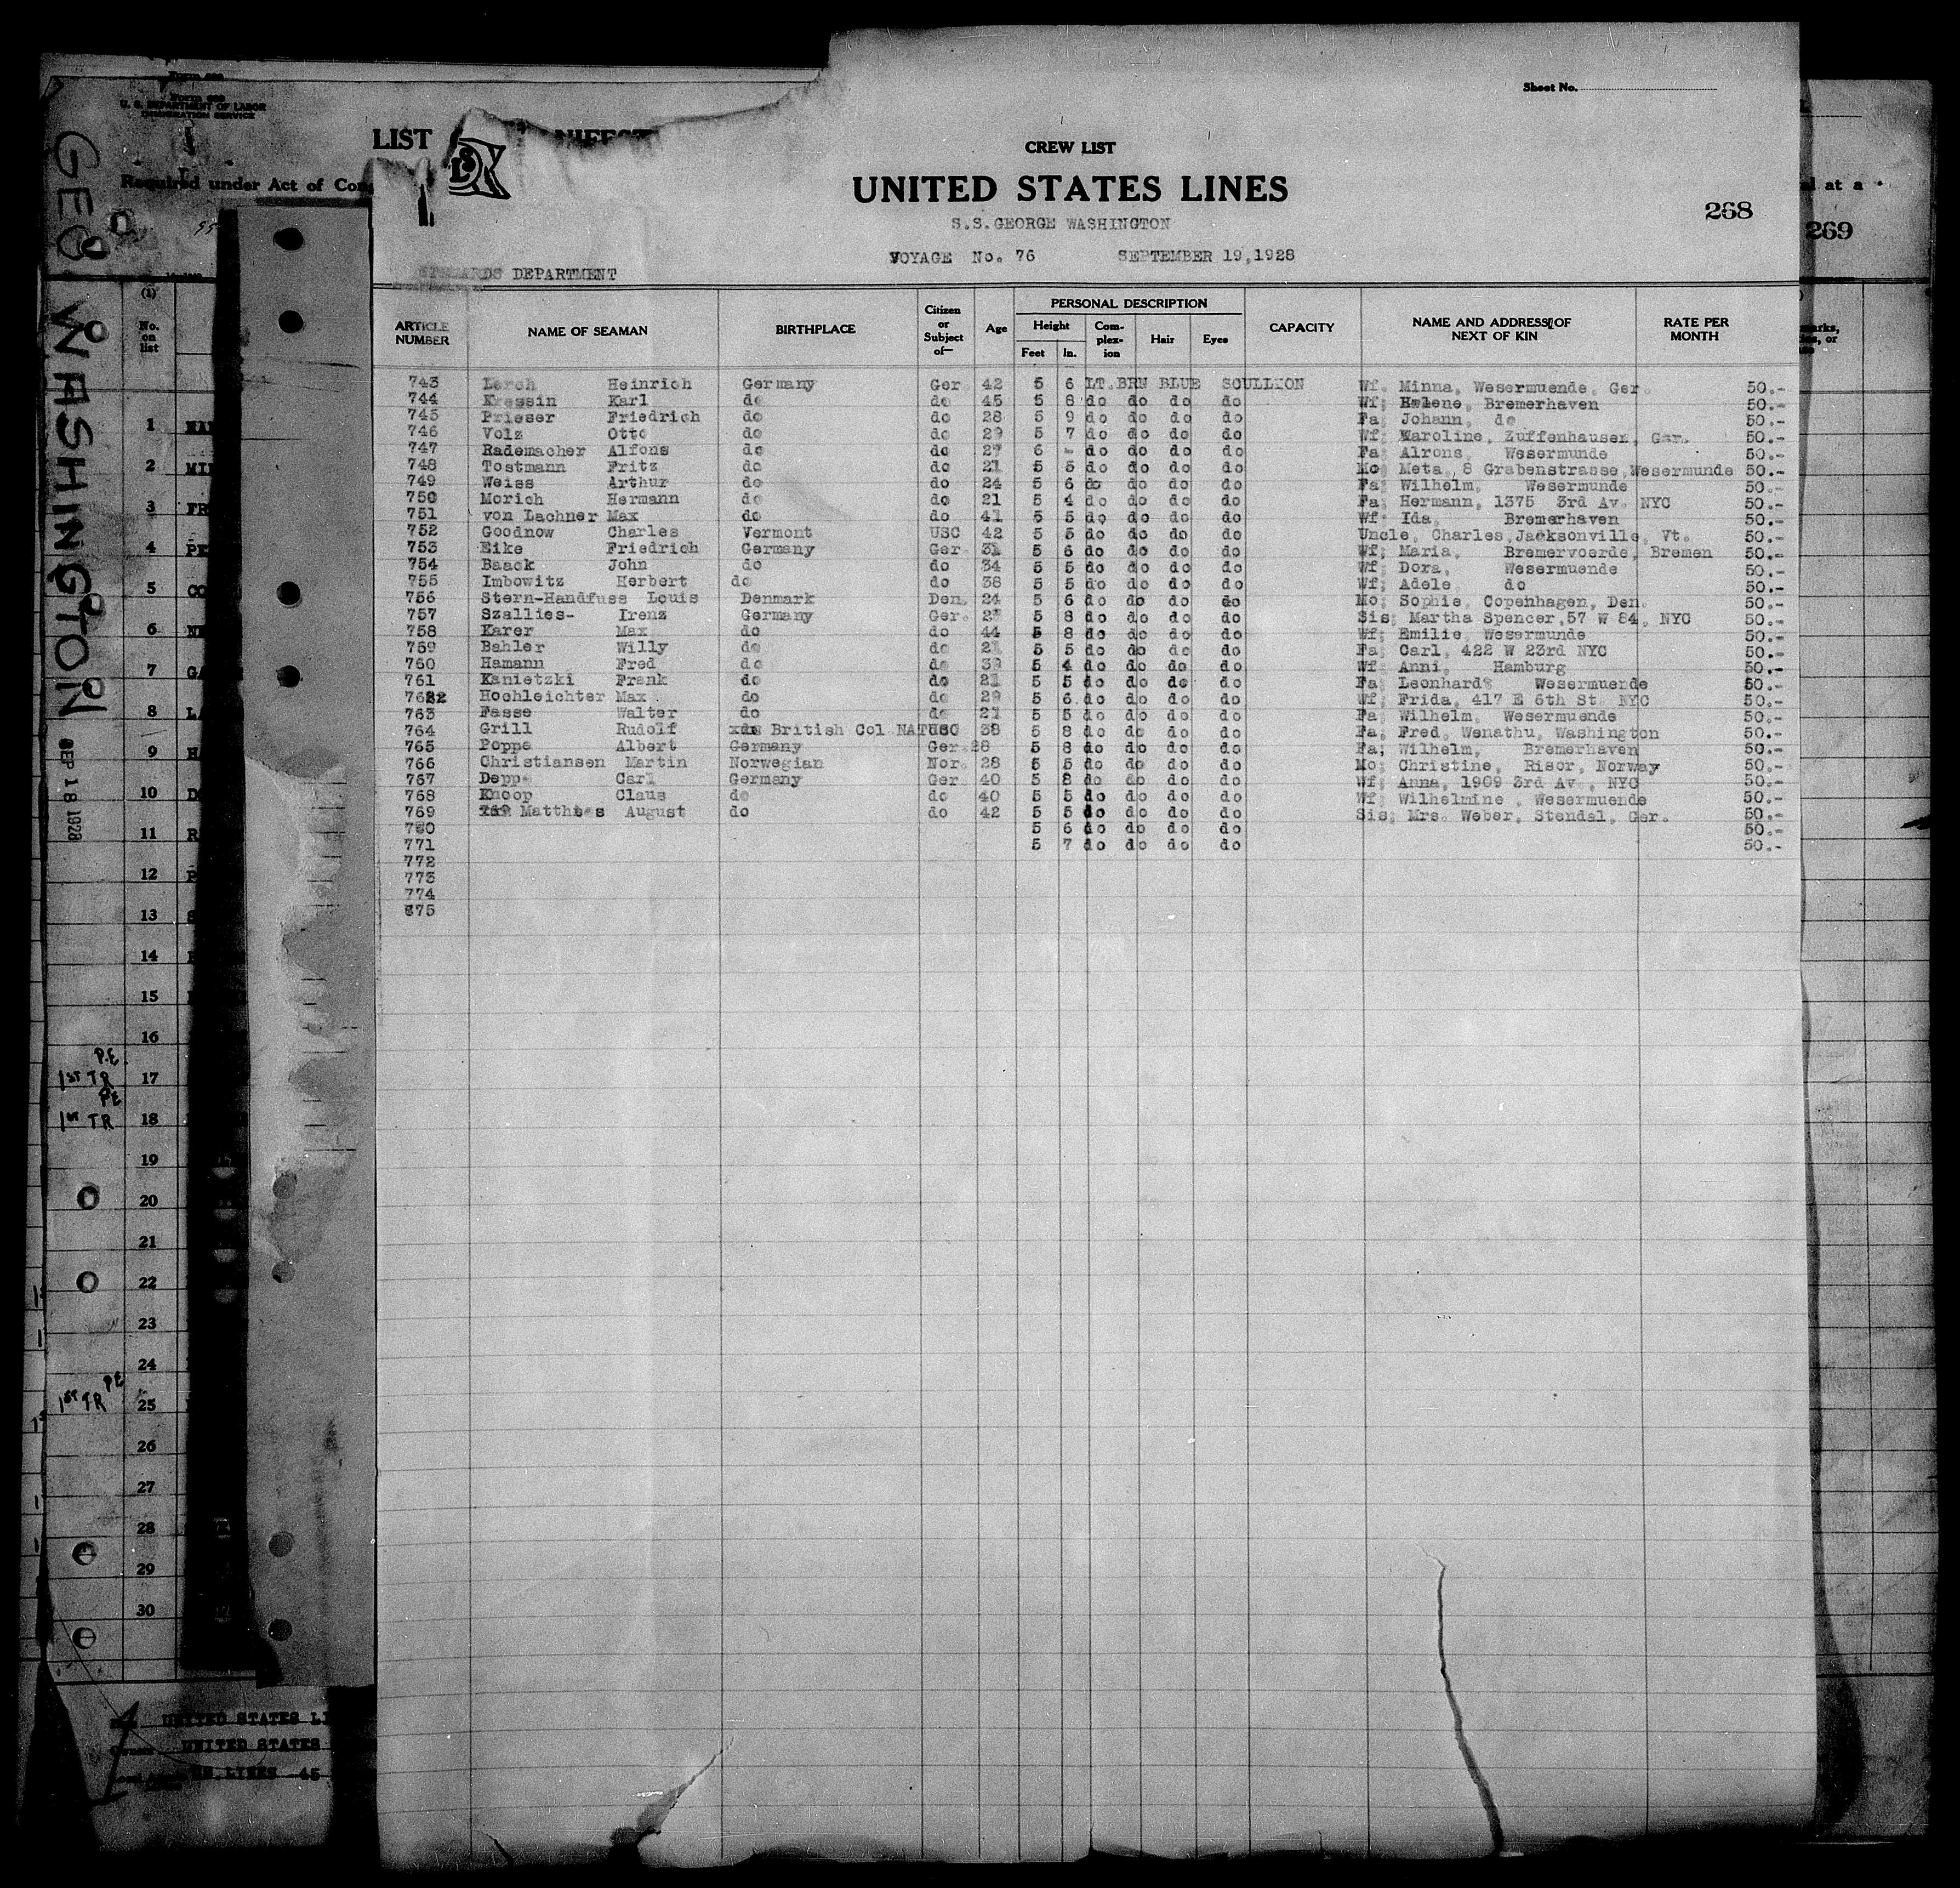 Form 680
U. S. DEPARTMENT OF LABOR
IMMIGRATION SERVICE
Required under Act of Con
GEO WASHINGTON
SEP 18 1928
LIST
Sheet No.
CREW LIST
UNITED STATES LINES
S.S.GEORGE WASHINGTON
VOYAGE No. 76 SEPTEMBER 19,1928
268
al at a
269
DEPARTMENT
ARTICLE NUMBER NAME OF SEAMAN BIRTHPLACE Citizen or Subject of— Age PERSONAL DESCRIPTION Height Feet In. Com-plex-ion Hair Eyes CAPACITY NAME AND ADDRESS OF NEXT OF KIN RATE PER MONTH
743 Lerch Heinrich Germany Ger 42 5 6 LT.BRN BLUE SCULLION Wf. Minna, Wesermuende, Ger. 50.-
744 Kressin Karl do do 45 5 8 do do do do Wf; Helene, Bremerhaven 50.-
745 Prieser Friedrich do do 28 5 9 do do do do Fa; Johann, do 50.-
746 Volz Otto do do 29 5 7 do do do do Wf; Karoline, Zuffenhausen, Ger. 50.-
747 Rademacher Alfons do do 27 6 - do do do do Fa; Alrons, Wesermunde 50.-
748 Tostmann Fritz do do 21 5 5 do do do do Mo; Meta, 8 Grabenstrasse,Wesermunde 50.-
749 Weiss Arthur do do 24 5 6 do do do do Fa; Wilhelm, Wesermunde 50.-
750 Morich Hermann do do 21 5 4 do do do do Fa; Hermann, 1375 3rd Av. NYC 50.-
751 von Lachner Max do do 41 5 5 do do do do Wf; Ida, Bremerhaven 50.-
752 Goodnow Charles Vermont USC 42 5 5 do do do do Uncle, Charles,Jacksonville, Vt. 50.-
753 Eike Friedrich Germany Ger. 31 5 6 do do do do Wf; Maria, Bremervoerde, Bremen 50.-
754 Baack John do do 34 5 5 do do do do Wf; Dora, Wesermuende 50.-
755 Imbowitz Herbert do do 38 5 5 do do do do Wf; Adele, do 50.-
756 Stern-Handfuss Louis Denmark Den. 24 5 6 do do do do Mo; Sophie, Copenhagen, Den. 50.-
757 Szallies- Irenz Germany Ger. 5 8 do do do do Sis; Martha Spencer,57 W 84, NYC 50.-
758 Karer Max do do 44 5 8 do do do do Wf; Emilie, Wesermunde 50.-
759 Bahler Willy do do 5 5 do do do do Fa; Carl, 422 W 23rd NYC 50.-
760 Hamann Fred do do 39 5 4 do do do do Wf; Anni, Hamburg 50.-
761 Kanietzki Frank do do 21 5 5 do do do do Fa; Leonhard Wesermuende 50.-
762 Hochleichter Max do do 29 5 6 do do do do Wf; Frida, 417 E 6th St. NYC 50.-
763 Fasse Walter do do 5 5 do do do do Fa; Wilhelm, Wesermuende 50.-
764 Grill Rudolf British Col NAT USC 38 5 8 do do do do Fa; Fred, Wenathu, Washington 50.-
765 Poppe Albert Germany Ger.28 5 8 do do do do Fa; Wilhelm, Bremerhaven 50.-
766 Christiansen Martin Norwegian Nor. 28 5 5 do do do do Mo; Christine, Risor, Norway 50.-
767 Depp Carl Germany Ger. 40 5 8 do do do do Wf; Anna, 1909 3rd Av., NYC 50.-
768 Knoop Claus do do 40 5 5 do do do do Wf; Wilhelmine, Wesermuende 50.-
769 Matthies August do do 42 5 5 do do do do Sis; Mrs. Weber, Stendal, Ger. 50.-
770 5 6 do do do do 50.-
771 5 7 do do do do 50.-
772
773
774
775
(1)
No. on list
1
2
3
4
5
6
7
8
9
10
11
12
13
14
15
16
P.E. 1ST TR 17
PE 1ST TR 18
19
20
21
22
23
24
PE 1ST TR 25
26
27
28
29
30
UNITED STATES LI
UNITED STATES
LINES 45